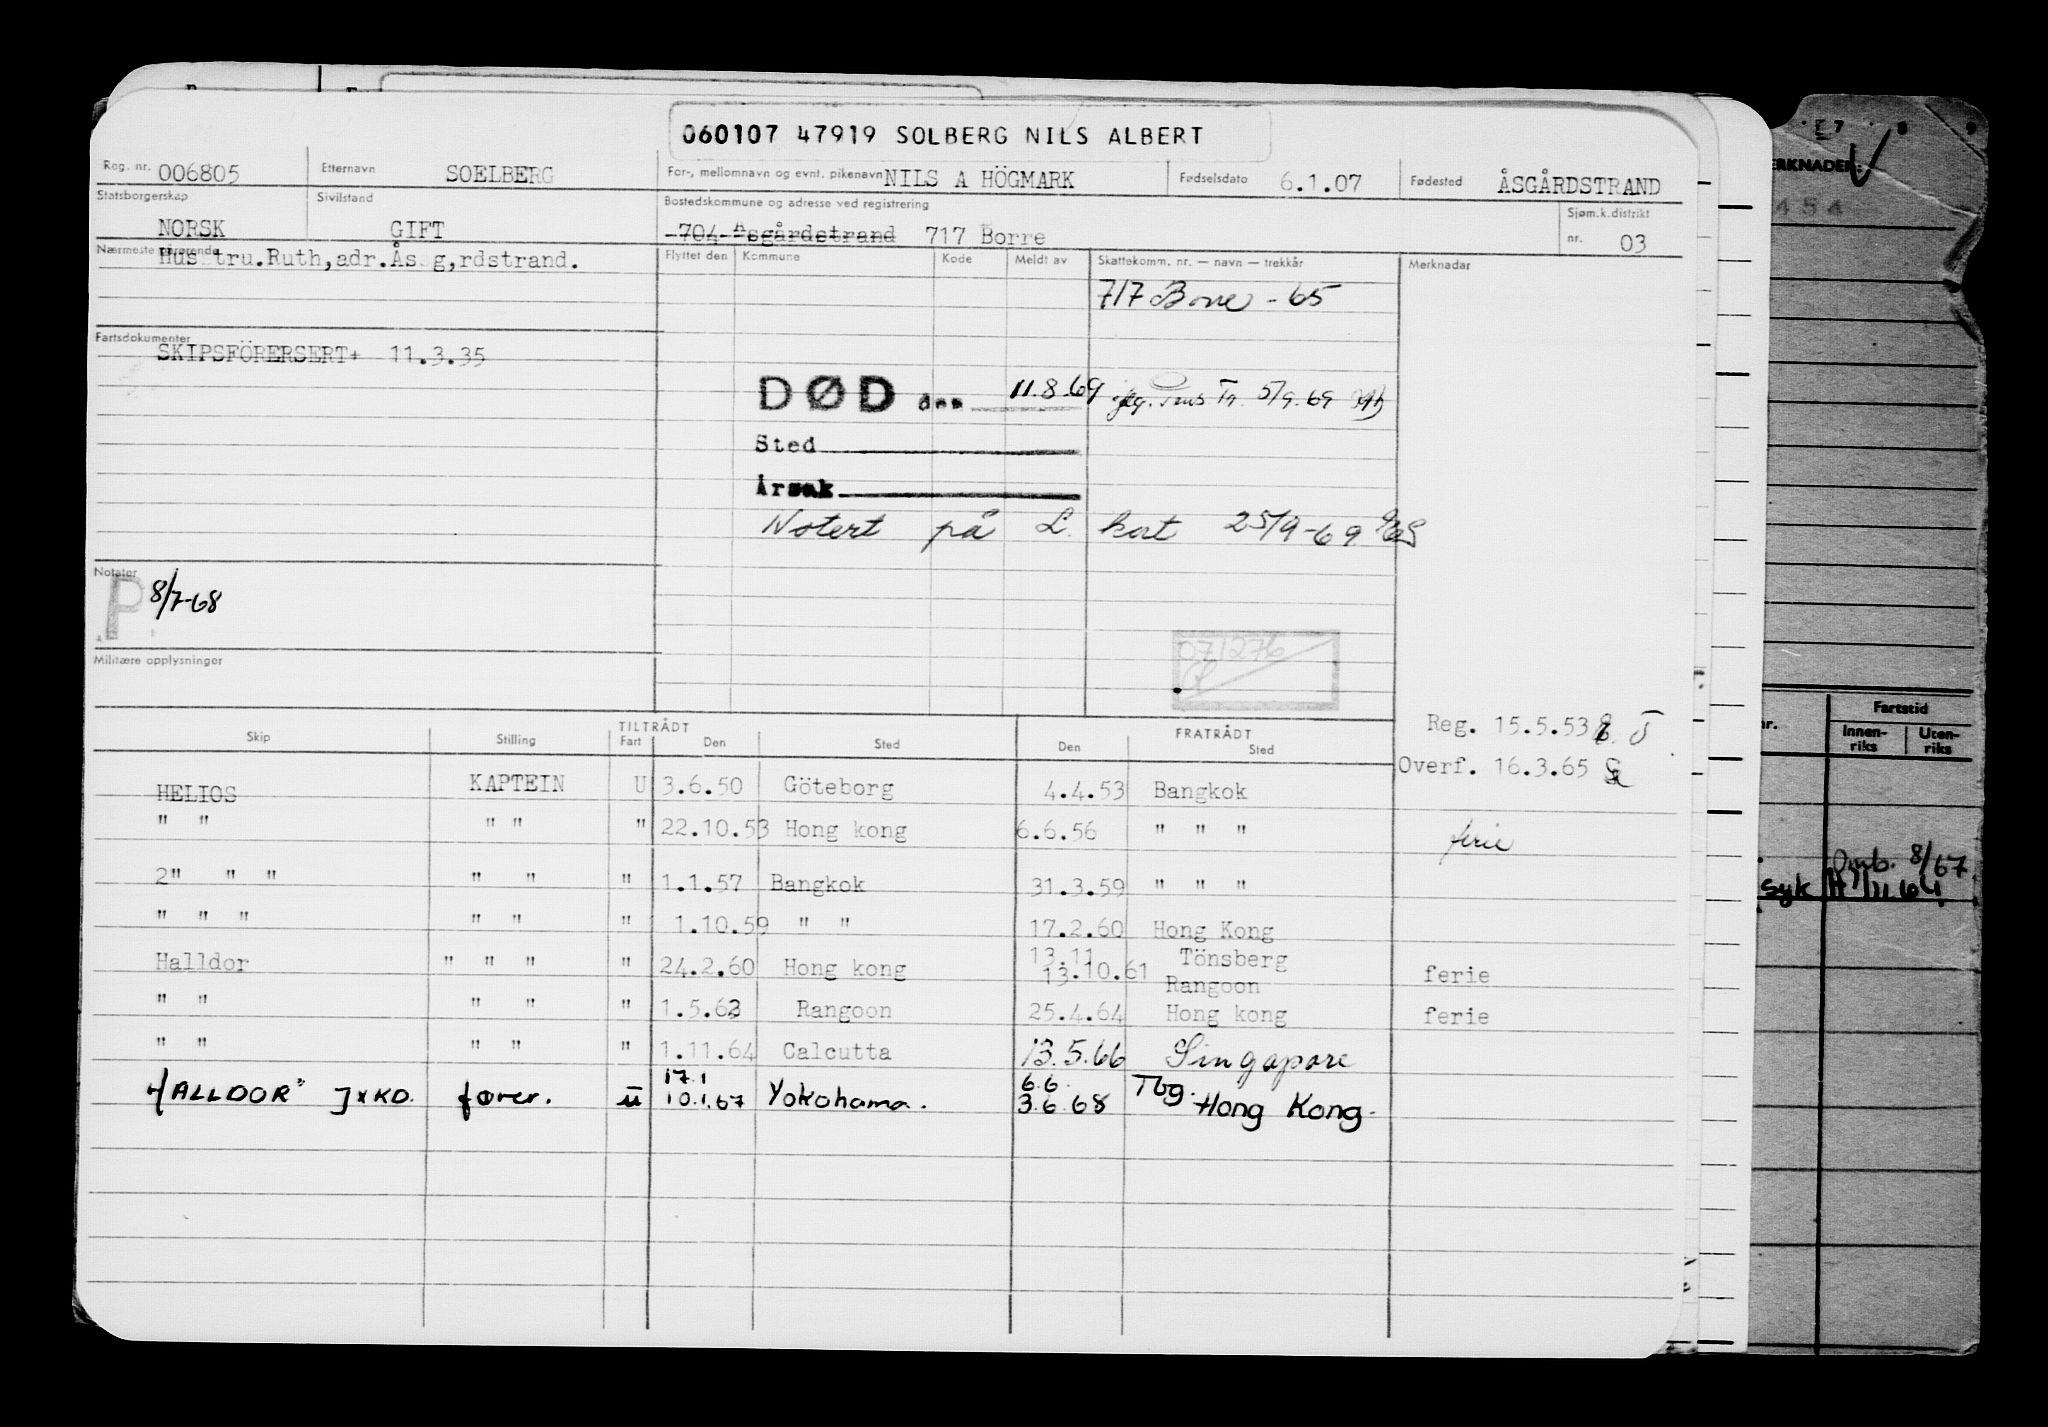 060107 47919 SOLBERG NILS ALBERT
Reg. nr. 006805 Etternavn SOELBERG For-, mellomnavn og evnt. pikenavn NILS A HÖGMARK Fødselsdato 6.1.07 Fødested ÅSGÅRDSTRAND
Statsborgerskap NORSK Sivilstand GIFT Bostedskommune og adresse ved registrering 704 Åsgårdstrand 717 Borre Sjøm.k.distrikt nr. 03
Nærmeste pårørende Hus tru.Ruth,adr.Ås g,rdstrand.
Flyttet den Kommune Kode Meldt av Skattekomm. nr. — navn — trekkår Merknader
717 Borre - 65
Fartsdokumenter SKIPSFÖRERSERT+ 11.3.35
DØD den 11.8.69 Tr. 5/9.69
Sted
Årsak
Notert på L. kort 25/9-69
Notater
P 8/7-68
071276
Militære opplysninger
Reg. 15.5.53
Overf. 16.3.65
TILTRÅDT FRATRÅDT
Skip Stilling Fart Den Sted Den Sted
HELIOS KAPTEIN U 3.6.50 Göteborg 4.4.53 Bangkok
" " " " " 22.10.53 Hong kong 6.6.56 " " " ferie
2" " " " " " 1.1.57 Bangkok 31.3.59 " " "
" " " " " " 1.10.59 " " 17.2.60 Hong Kong
Halldor " " " " 24.2.60 Hong kong 13.11 Tönsberg
13.10.61 Rangoon ferie
" " " " " 1.5.63 Rangoon 25.4.64 Hong kong ferie
" " " " " 1.11.64 Calcutta 13.5.66 Singapore
17.1 6.6. Tbg.
HALLDOR" JXKD. fører. u 10.1.67 Yokohama. 3.6.68 Hong Kong.
7 8 9
ERKNADER
454
nr. Fartstid
Innen-riks Uten-riks
Omb. 8/67.
syk